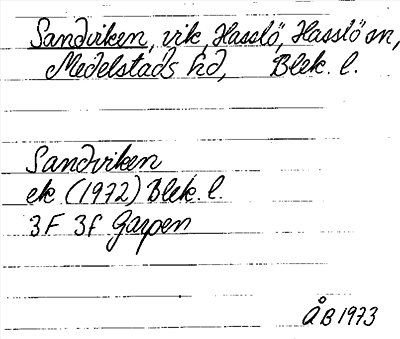 Sandviken, vik, Hasslö, Hasslö sn,
Medelstads hd, Blek. l.
Sandviken
ek (1972) Blek. l.
3F 3f Garpen
ÅB 1973